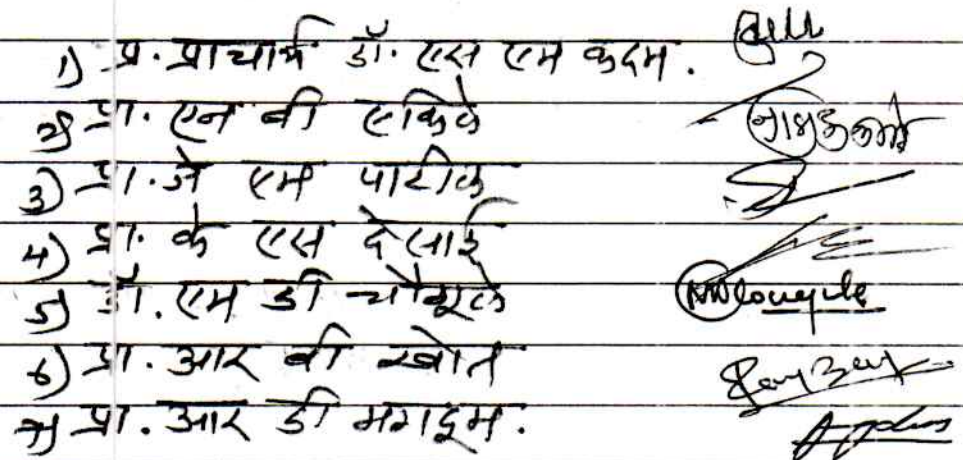 1) प्र. प्राचार्य डॉ. एस एम कदम.
2) प्रा. एन बी एकिले
3) प्रा. जे एम पाटील
4) प्रा. के एस देसाई
5) डॉ. एम डी चौगूले
6) प्रा. आर बी खोत
7) प्रा. आर डी मगदूम.